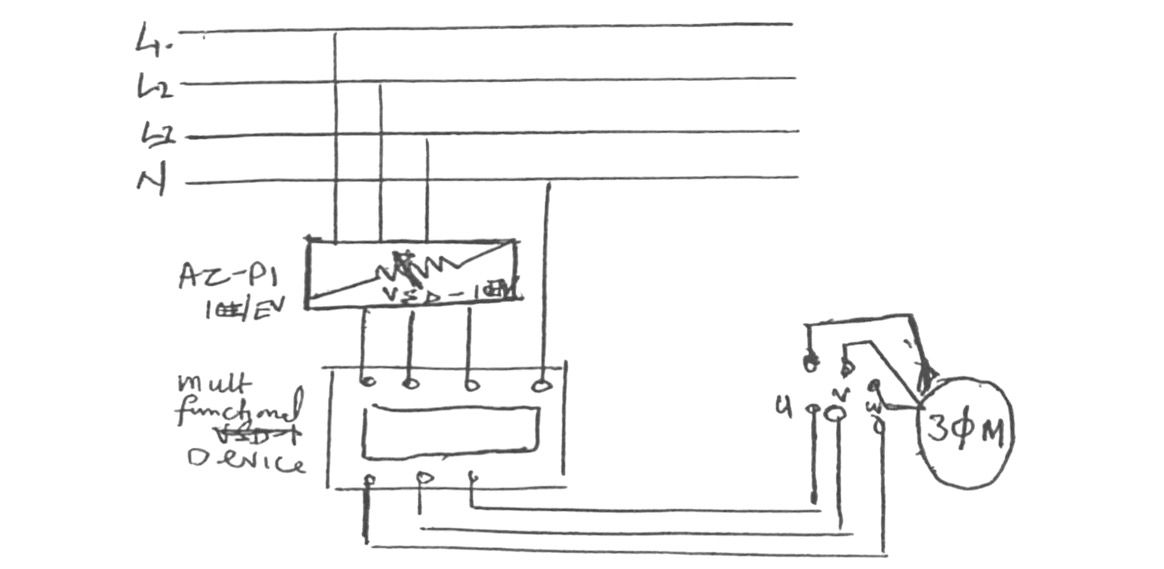 L1.
L2
L3
N
AZ-P1
VSD-1
/EV
mult
functional
Device
U
V
W
3ΦM